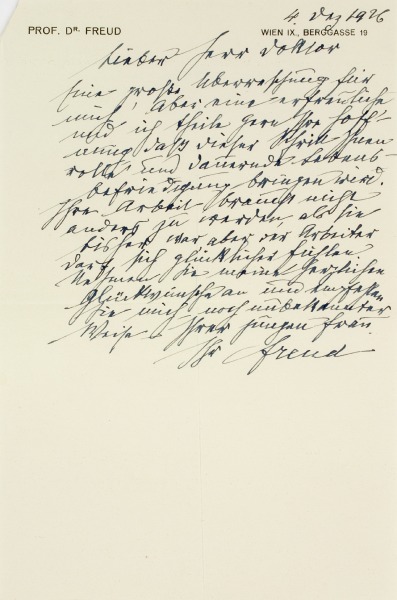 4. Dez 1926
PROF. DR. FREUD
WIEN IX., BERGGASSE 19
Lieber Herr Doktor
Eine große Überraschung für
mich! Aber eine erfreuliche
und ich theile gern Ihre Hoff-
nung daß dieser Schritt Ihnen
volle und dauernde Lebens-
befriedigung bringen wird.
Ihre Arbeit braucht nicht
anders zu werden als sie
bisher war aber der Arbeiter
darf sich glücklicher fühlen.
Nehmen Sie meine herzlichen
Glückwünsche an und empfehlen
Sie mich noch unbekannter
Weise Ihrer jungen Frau.
Ihr Freud